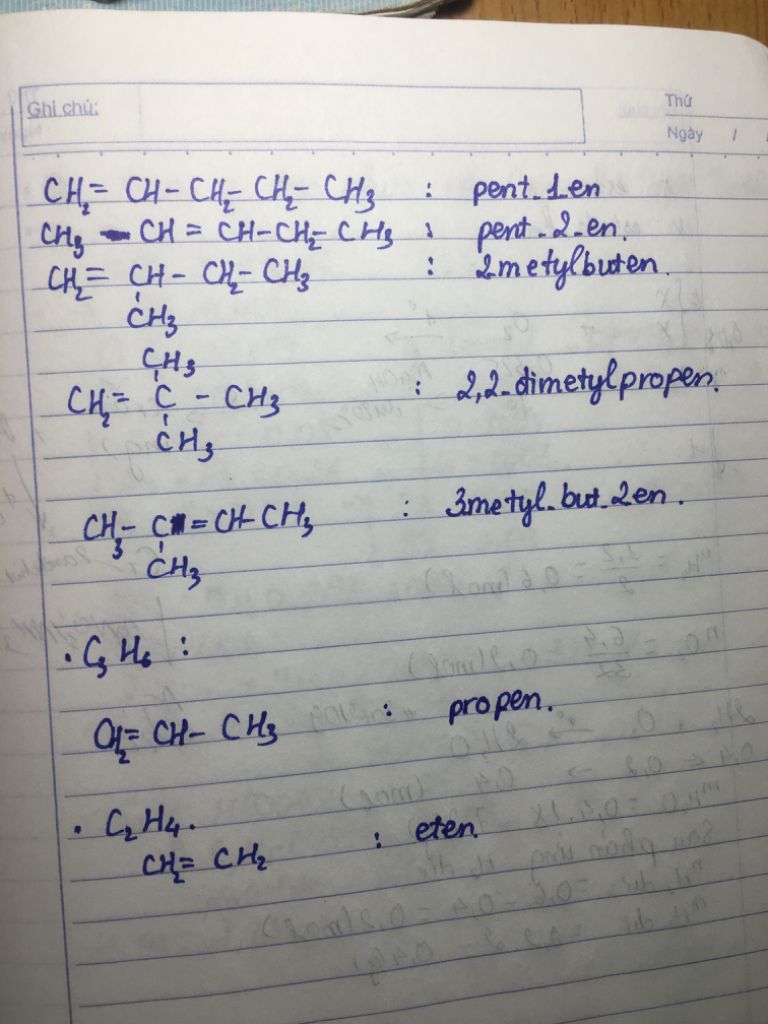 Ghi chú:
Thứ
Ngày / /
CH₂= CH- CH₂- CH₂- CH₃ : pent-1-en
CH₃ - CH = CH-CH₂- CH₃ : pent-2-en.
CH₂= CH- CH₂-CH₃ : 2metylbuten.
CH₃
CH₃
CH₂= C - CH₃ : 2,2-dimetylpropen.
CH₃
CH₃- C = CH-CH₃ : 3metyl-but-2en.
CH₃
. C₃H₆ :
CH₂= CH- CH₃ : propen.
. C₂H₄.
CH₂= CH₂ : eten.